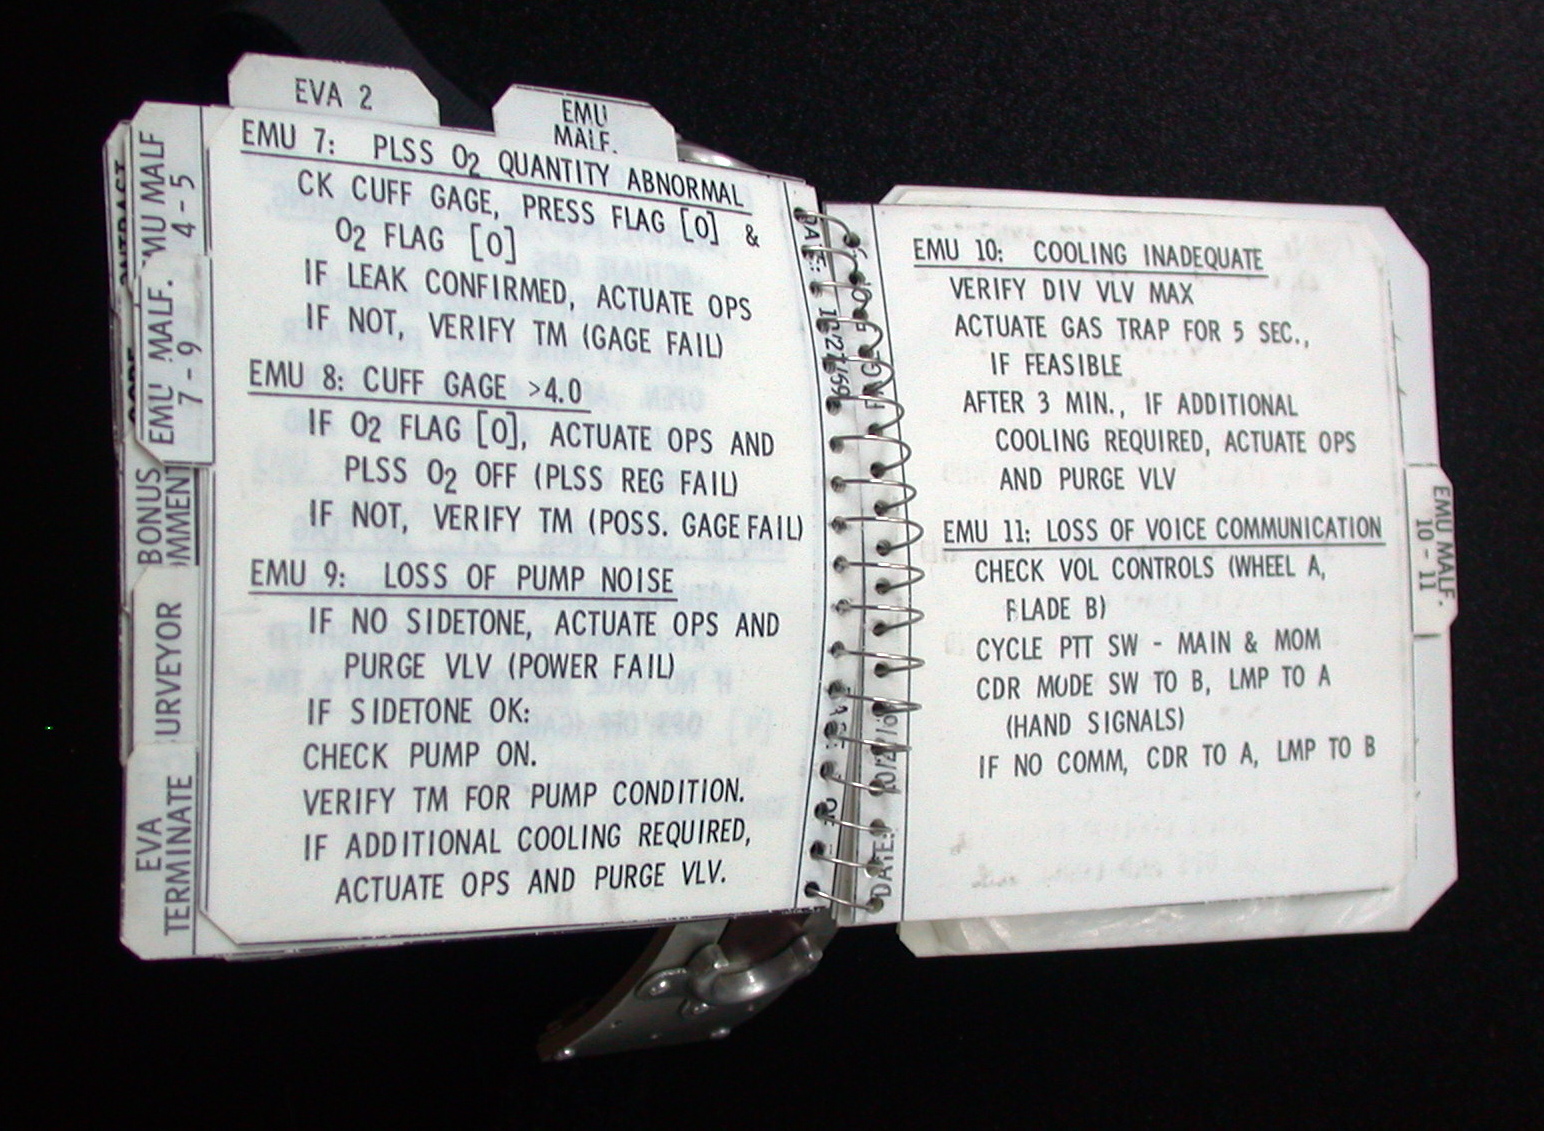 EVA 2
EMU
MALF.
EMU MALF
4 - 5
EMU MALF.
7 - 9
BONUS
SURVEYOR
EVA
TERMINATE
EMU 7: PLSS O2 QUANTITY ABNORMAL
CK CUFF GAGE, PRESS FLAG [O] &
O2 FLAG [O]
IF LEAK CONFIRMED, ACTUATE OPS
IF NOT, VERIFY TM (GAGE FAIL)
EMU 8: CUFF GAGE >4.0
IF O2 FLAG [O], ACTUATE OPS AND
PLSS O2 OFF (PLSS REG FAIL)
IF NOT, VERIFY TM (POSS. GAGE FAIL)
EMU 9: LOSS OF PUMP NOISE
IF NO SIDETONE, ACTUATE OPS AND
PURGE VLV (POWER FAIL)
IF SIDETONE OK:
CHECK PUMP ON.
VERIFY TM FOR PUMP CONDITION.
IF ADDITIONAL COOLING REQUIRED,
ACTUATE OPS AND PURGE VLV.
DATE: 10/27/69
DATE:
EMU 10: COOLING INADEQUATE
VERIFY DIV VLV MAX
ACTUATE GAS TRAP FOR 5 SEC.,
IF FEASIBLE
AFTER 3 MIN., IF ADDITIONAL
COOLING REQUIRED, ACTUATE OPS
AND PURGE VLV
EMU 11: LOSS OF VOICE COMMUNICATION
CHECK VOL CONTROLS (WHEEL A,
BLADE B)
CYCLE PTT SW - MAIN & MOM
CDR MODE SW TO B, LMP TO A
(HAND SIGNALS)
IF NO COMM, CDR TO A, LMP TO B
EMU MALF.
10 - 11